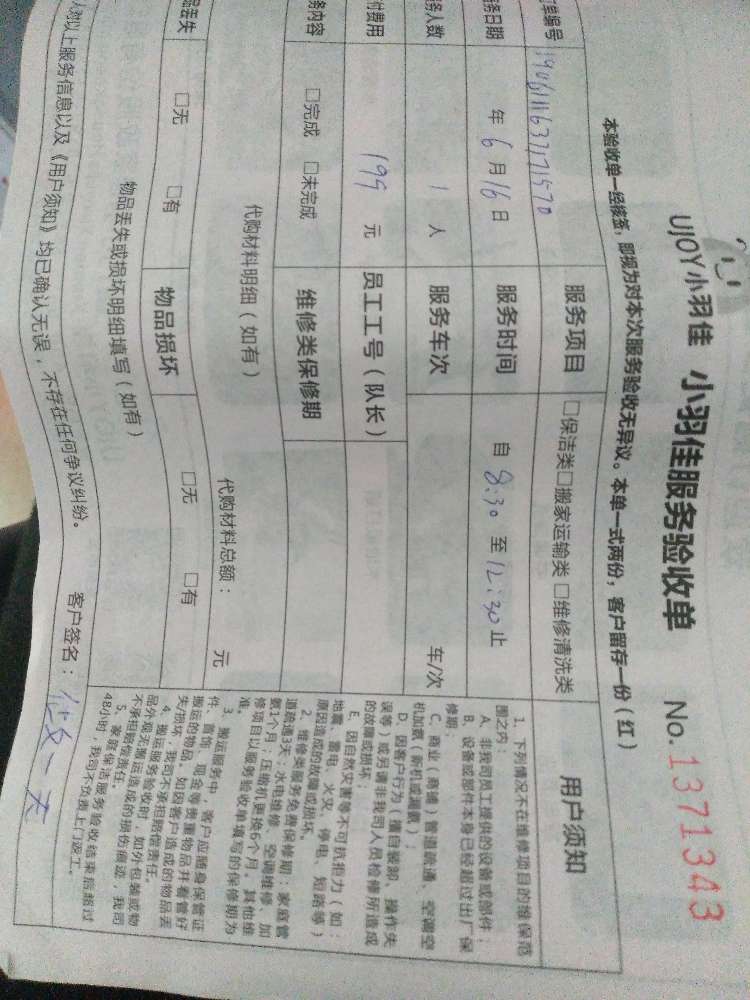 UJOY小羽佳 小羽佳服务验收单 No.1371343
本验收单一经核签，即视为对本次服务验收无异议。本单一式两份，客户留存一份（红）
订单编号 服务项目 □保洁类□搬家运输类 □维修清洗类
务日期 年 6 月 16 日 服务时间 自 8:30 至 12:30 止
务人数 1 人 服务车次 车/次
付费用 199 元 员工工号（队长）
务内容 □完成 □未完成 维修类保修期
代购材料明细（如有） 代购材料总额： 元
品丢失 □无 □有 物品损坏 □无 □有
物品丢失或损坏明细填写（如有）
人对以上服务信息以及《用户须知》均已确认无误，不存在任何争议纠纷。 客户签名：
用户须知
1、下列情况不在维修项目的维保范
围之内：
A、非我司员工提供的设备或部件；
B、设备或部件本身已经超过出厂保
修期；
C、商业（商铺）管道疏通、空调空
机加氨（新机或漏氨）；
D、因客户行为（擅自装卸、操作失
误等）或另请非我司人员检修所造成
的故障或损坏；
E、因自然灾害等不可抗拒力（如：
地震、雷电、火灾、停电、短路等）
原因造成的故障或损坏。
2、维修类服务免费保修期：家庭管
道疏通3天；水电维修、空调维修、加
氨1个月；压缩机更换6个月。其他维
修项目以服务验收单填写的保修期为
准。
3、搬运服务中，客户应随身保管证
件、首饰、现金等贵重物品并看管好
搬运的物品。如因客户造成的物品丢
失/损坏，我司不承担赔偿责任。
4、搬运服务验收时，如外包装或物
品外观无搬运造成的损伤痕迹，我司
不承担赔偿责任。
5、家庭保洁服务验收结束后超过
48小时，我司不负责上门返工。